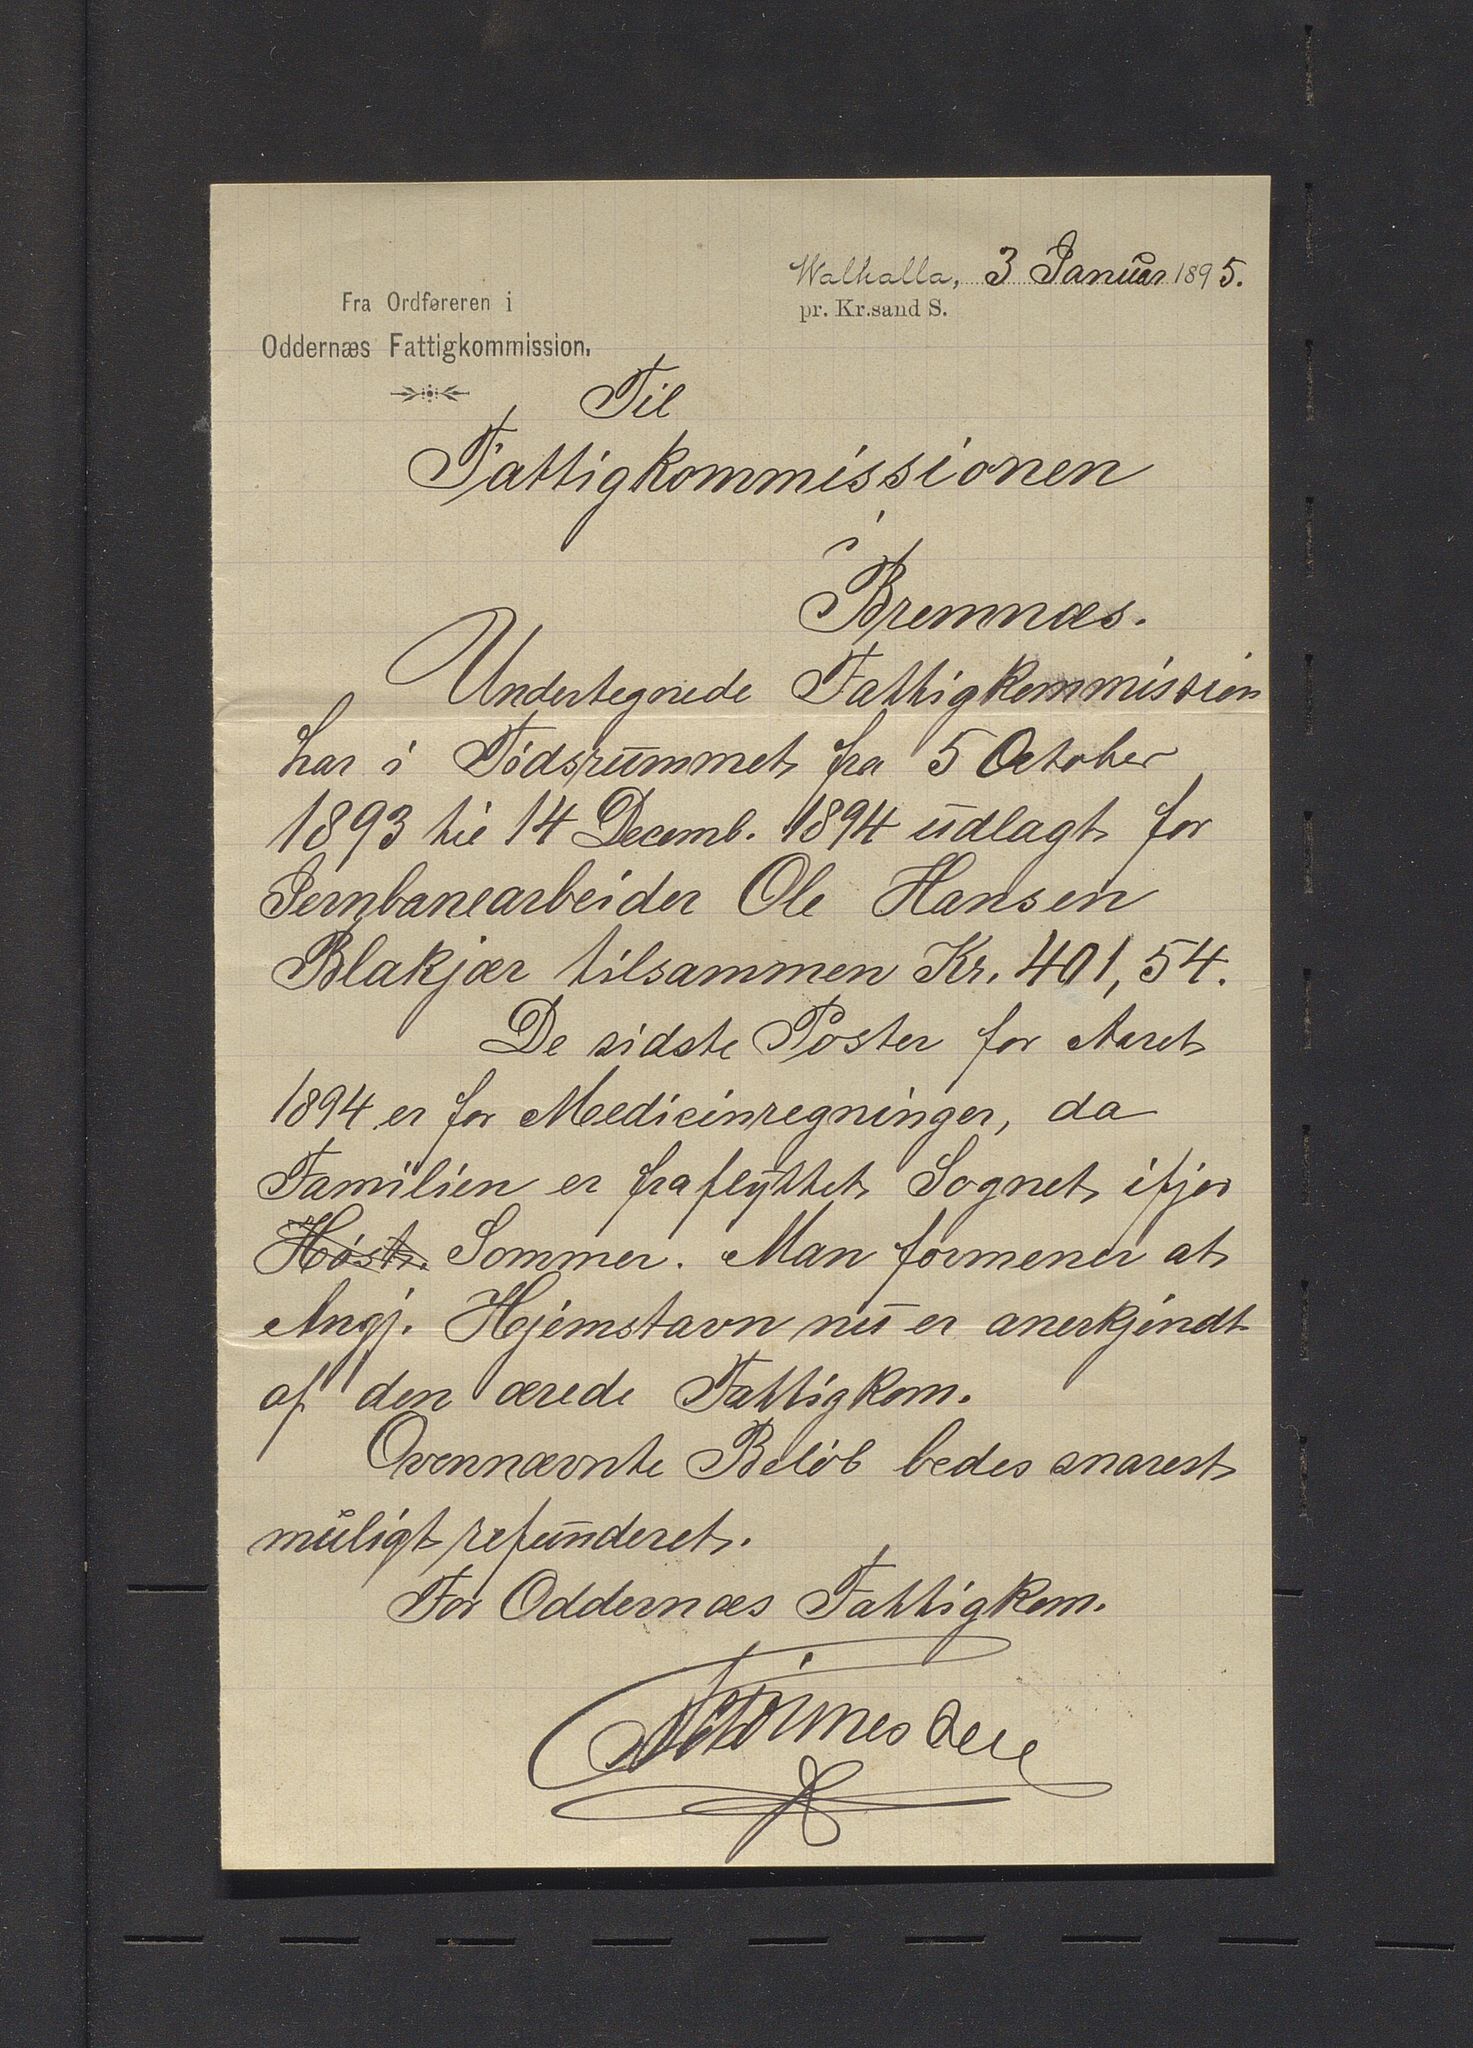 Walhalla, 3 Januar 1895.
pr. Kr.sand S.
Fra Ordføreren i
Oddernæs Fattigkommission.
Til
Fattigkommissionen
i
Bremnæs.
Undertegnede Fattigkommission
har i Tidsrummet fra 5 October
1893 til 14 Decemb. 1894 udlagt for
Jernbanearbeider Ole Hansen
Blakjær tilsammen Kr. 401,54.
De sidste Poster for Aaret
1894 er for Medicinregninger, da
Familien er fraflyttet Sognet ifjor
Høst. Sommer. Man formener at
Angj. Hjemstavn nu er anerkjendt
af den ærede Fattigkom.
Ovennævnte Beløb bedes snarest
muligt refunderet.
For Oddernæs Fattigkom.